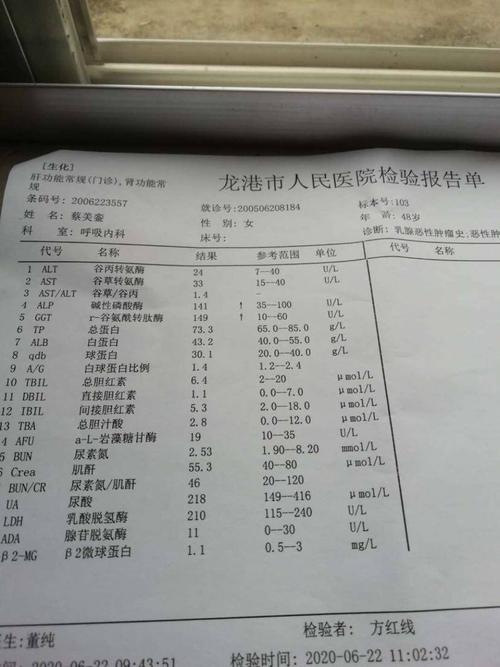 [生化]
肝功能常规(门诊),肾功能常规
龙港市人民医院检验报告单
条码号: 2006223557 就诊号:200506208184 标本号:103
姓 名: 蔡美銮 性 别: 女 年 龄: 48岁
科 室: 呼吸内科 床号: 诊断: 乳腺恶性肿瘤史;恶性肿
代号 名称 结果 参考范围 单位 代号 名称
1 ALT 谷丙转氨酶 24 7--40 U/L
2 AST 谷草转氨酶 33 15--40 U/L
3 AST/ALT 谷草/谷丙 1.4 -
4 ALP 碱性磷酸酶 141 ↑ 35--100 U/L
5 GGT r-谷氨酰转肽酶 149 ↑ 10--60 U/L
6 TP 总蛋白 73.3 65.0--85.0 g/L
7 ALB 白蛋白 43.2 40.0--55.0 g/L
8 qdb 球蛋白 30.1 20.0--40.0 g/L
9 A/G 白球蛋白比例 1.4 1.2--2.4
10 TBIL 总胆红素 6.4 2--20 μmol/L
11 DBIL 直接胆红素 1.1 0.0--7.0 μmol/L
12 IBIL 间接胆红素 5.3 2.0--18.0 μmol/L
13 TBA 总胆汁酸 2.8 0.0--12.0 μmol/L
4 AFU a-L-岩藻糖甘酶 19 10--35 U/L
5 BUN 尿素氮 2.53 1.90--8.20 mmol/L
6 Crea 肌酐 55.3 40--80 μmol/L
BUN/CR 尿素氮/肌酐 46 20--120
UA 尿酸 218 149--416 μmol/L
LDH 乳酸脱氢酶 210 115--240 U/L
ADA 腺苷脱氨酶 11 0--30 U/L
β2-MG β2微球蛋白 1.1 0.5--3 mg/L
生:董纯 检验者: 方红线
时间: 2020-06-22 09:43:51 检验时间: 2020-06-22 11:02:32